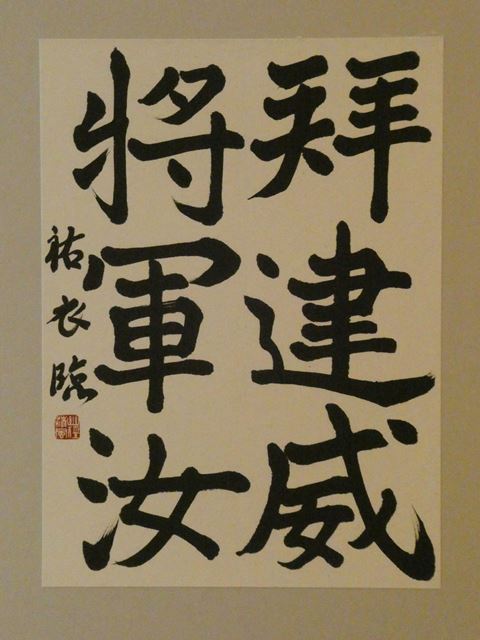 拜建威
將軍汝
祐衣臨